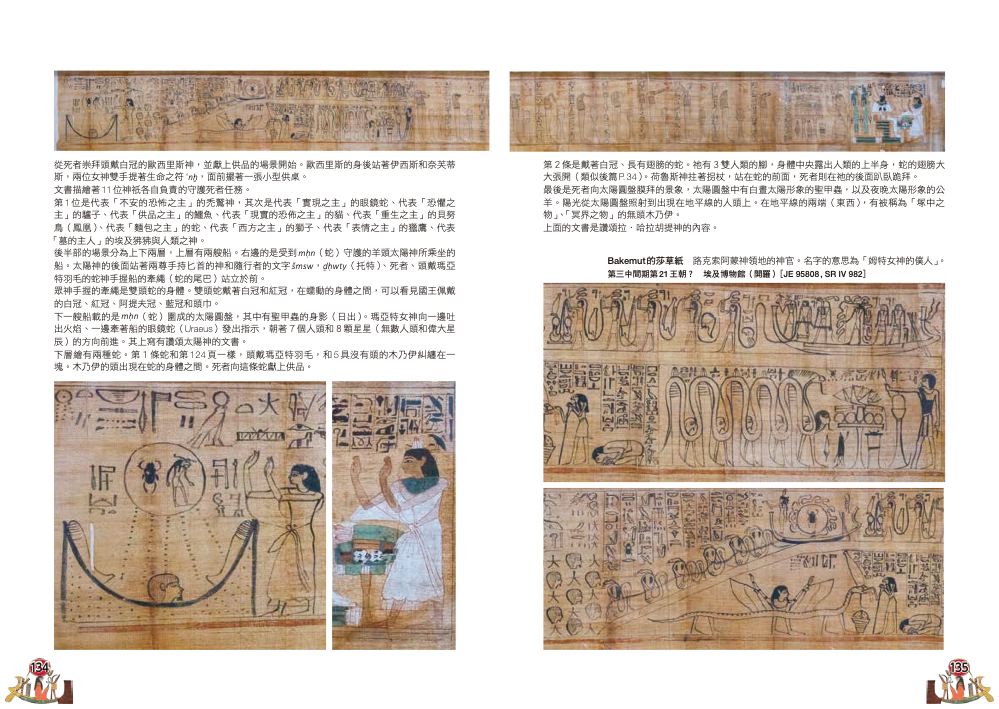 從死者崇拜頭戴白冠的歐西里斯神，並獻上供品的場景開始。歐西里斯的身後站著伊西斯和奈芙蒂
斯，兩位女神雙手提著生命之符 ꜥnḫ，面前擺著一張小型供桌。
文書描繪著 11 位神祇各自負責的守護死者任務。
第 1 位是代表「不安的恐怖之主」的禿鷲神，其次是代表「實現之主」的眼鏡蛇、代表「恐懼之
主」的驢子、代表「供品之主」的鱷魚、代表「現實的恐怖之主」的貓、代表「重生之主」的貝努
鳥（鳳凰）、代表「麵包之主」的蛇、代表「西方之主」的獅子、代表「表情之主」的獵鷹、代表
「墓的主人」的埃及狒狒與人類之神。
後半部的場景分為上下兩層，上層有兩艘船。右邊的是受到 mḥn（蛇）守護的羊頭太陽神所乘坐的
船。太陽神的後面站著兩尊手持匕首的神和隨行者的文字 šmsw，ḏḥwty（托特）、死者、頭戴瑪亞
特羽毛的蛇神手握船的牽繩（蛇的尾巴）站立於前。
眾神手握的牽繩是雙頭蛇的身體。雙頭蛇戴著白冠和紅冠，在蠕動的身體之間，可以看見國王佩戴
的白冠、紅冠、阿提夫冠、藍冠和頭巾。
下一艘船載的是 mḥn（蛇）圍成的太陽圓盤，其中有聖甲蟲的身影（日出）。瑪亞特女神向一邊吐
出火焰、一邊牽著船的眼鏡蛇（Uraeus）發出指示，朝著 7 個人頭和 8 顆星星（無數人頭和偉大星
辰）的方向前進。其上寫有讚頌太陽神的文書。
下層繪有兩種蛇。第 1 條蛇和第 124 頁一樣，頭戴瑪亞特羽毛，和 5 具沒有頭的木乃伊糾纏在一
塊。木乃伊的頭出現在蛇的身體之間。死者向這條蛇獻上供品。
134
第 2 條是戴著白冠、長有翅膀的蛇。祂有 3 雙人類的腳，身體中央露出人類的上半身，蛇的翅膀大
大張開（類似後篇 P.34）。荷魯斯神拄著拐杖，站在蛇的前面，死者則在祂的後面趴臥跪拜。
最後是死者向太陽圓盤膜拜的景象，太陽圓盤中有白晝太陽形象的聖甲蟲，以及夜晚太陽形象的公
羊。陽光從太陽圓盤照射到出現在地平線的人頭上。在地平線的兩端（東西），有被稱為「塚中之
物」、「冥界之物」的無頭木乃伊。
上面的文書是讚頌拉．哈拉胡提神的內容。
Bakemut的莎草紙　路克索阿蒙神領地的神官。名字的意思為「姆特女神的僕人」。
第三中間期第21王朝？　埃及博物館（開羅）［JE 95808, SR IV 982］
135